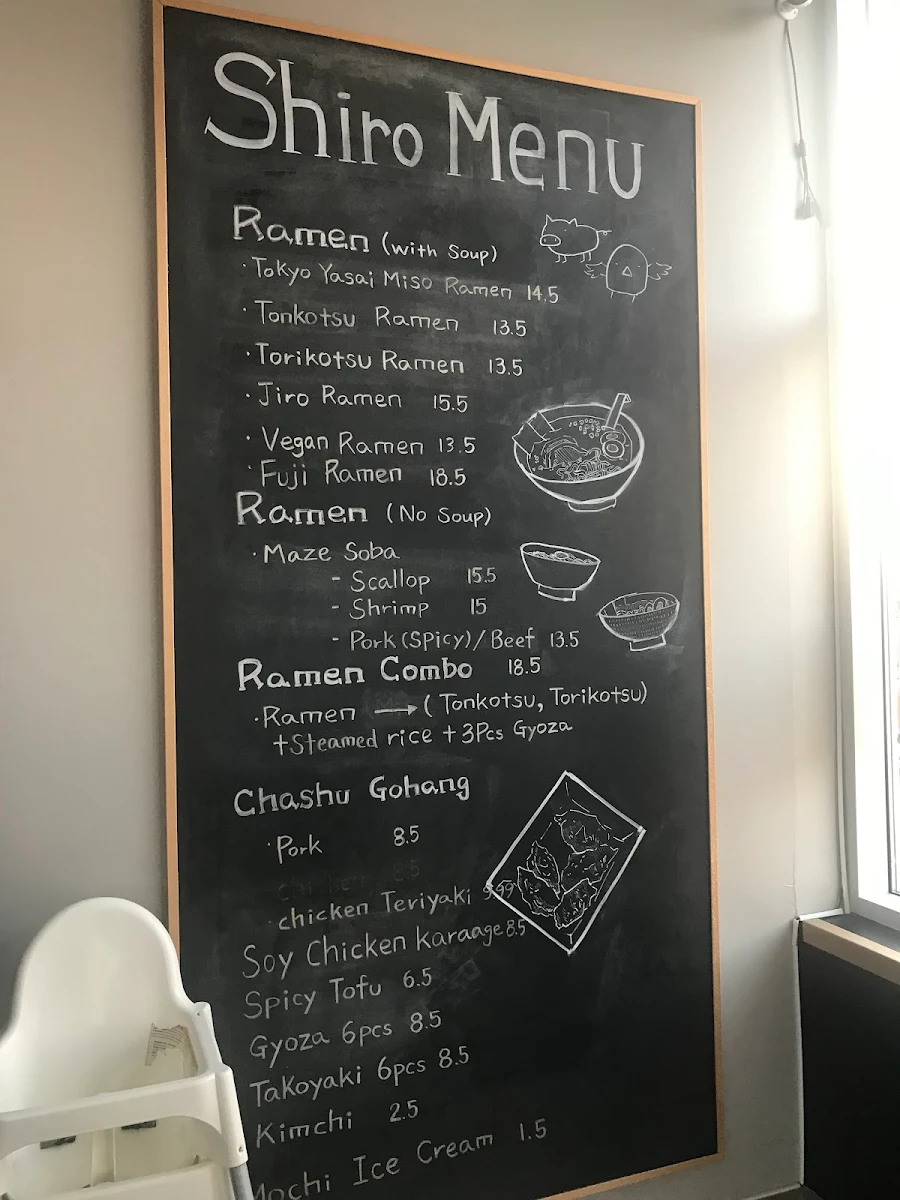 Shiro Menu
Ramen (with Soup)
· Tokyo Yasai Miso Ramen 14.5
· Tonkotsu Ramen 13.5
· Torikotsu Ramen 13.5
· Jiro Ramen 15.5
· Vegan Ramen 13.5
· Fuji Ramen 18.5
Ramen (No Soup)
· Maze Soba
- Scallop 15.5
- Shrimp 15
- Pork (SPicy)/Beef 13.5
Ramen Combo 18.5
· Ramen → (Tonkotsu, Torikotsu)
+Steamed rice +3Pcs Gyoza
Chashu Gohang
· Pork 8.5
· chicken Teriyaki 9.99
Soy Chicken Karaage 8.5
Spicy Tofu 6.5
Gyoza 6pcs 8.5
Takoyaki 6pcs 8.5
Kimchi 2.5
Mochi Ice Cream 1.5